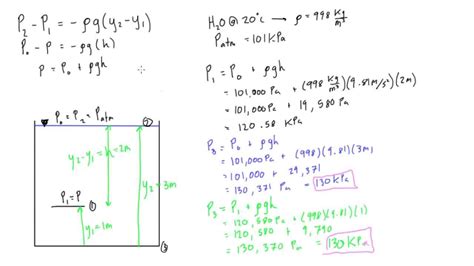 P₂ - P₁ = -ρg(y₂-y₁)
P₀ - P = -ρg(h)
P = P₀ + ρgh
H₂O @ 20°C → ρ = 998 Kg/m³
Patm = 101 KPa
P₁ = P₀ + ρgh
= 101,000 Pa + (998 Kg/m³)(9.81 m/s²)(2m)
= 101,000 Pa + 19,580 Pa
= 120.58 KPa
P₃ = P₀ + ρgh
= 101,000 Pa + (998)(9.81)(3m)
= 101,000 + 29,371
= 130,371 Pa = 130 KPa
P₃ = P₁ + ρgh
= 120,580 Pa + (998)(9.81)(1)
= 120,580 + 9,790
= 130,370 Pa = 130 KPa
P₀ = P₂ = Patm
②
y₂-y₁ = h = 2m
y₂ = 3m
P₁ = P
①
y₁ = 1m
③